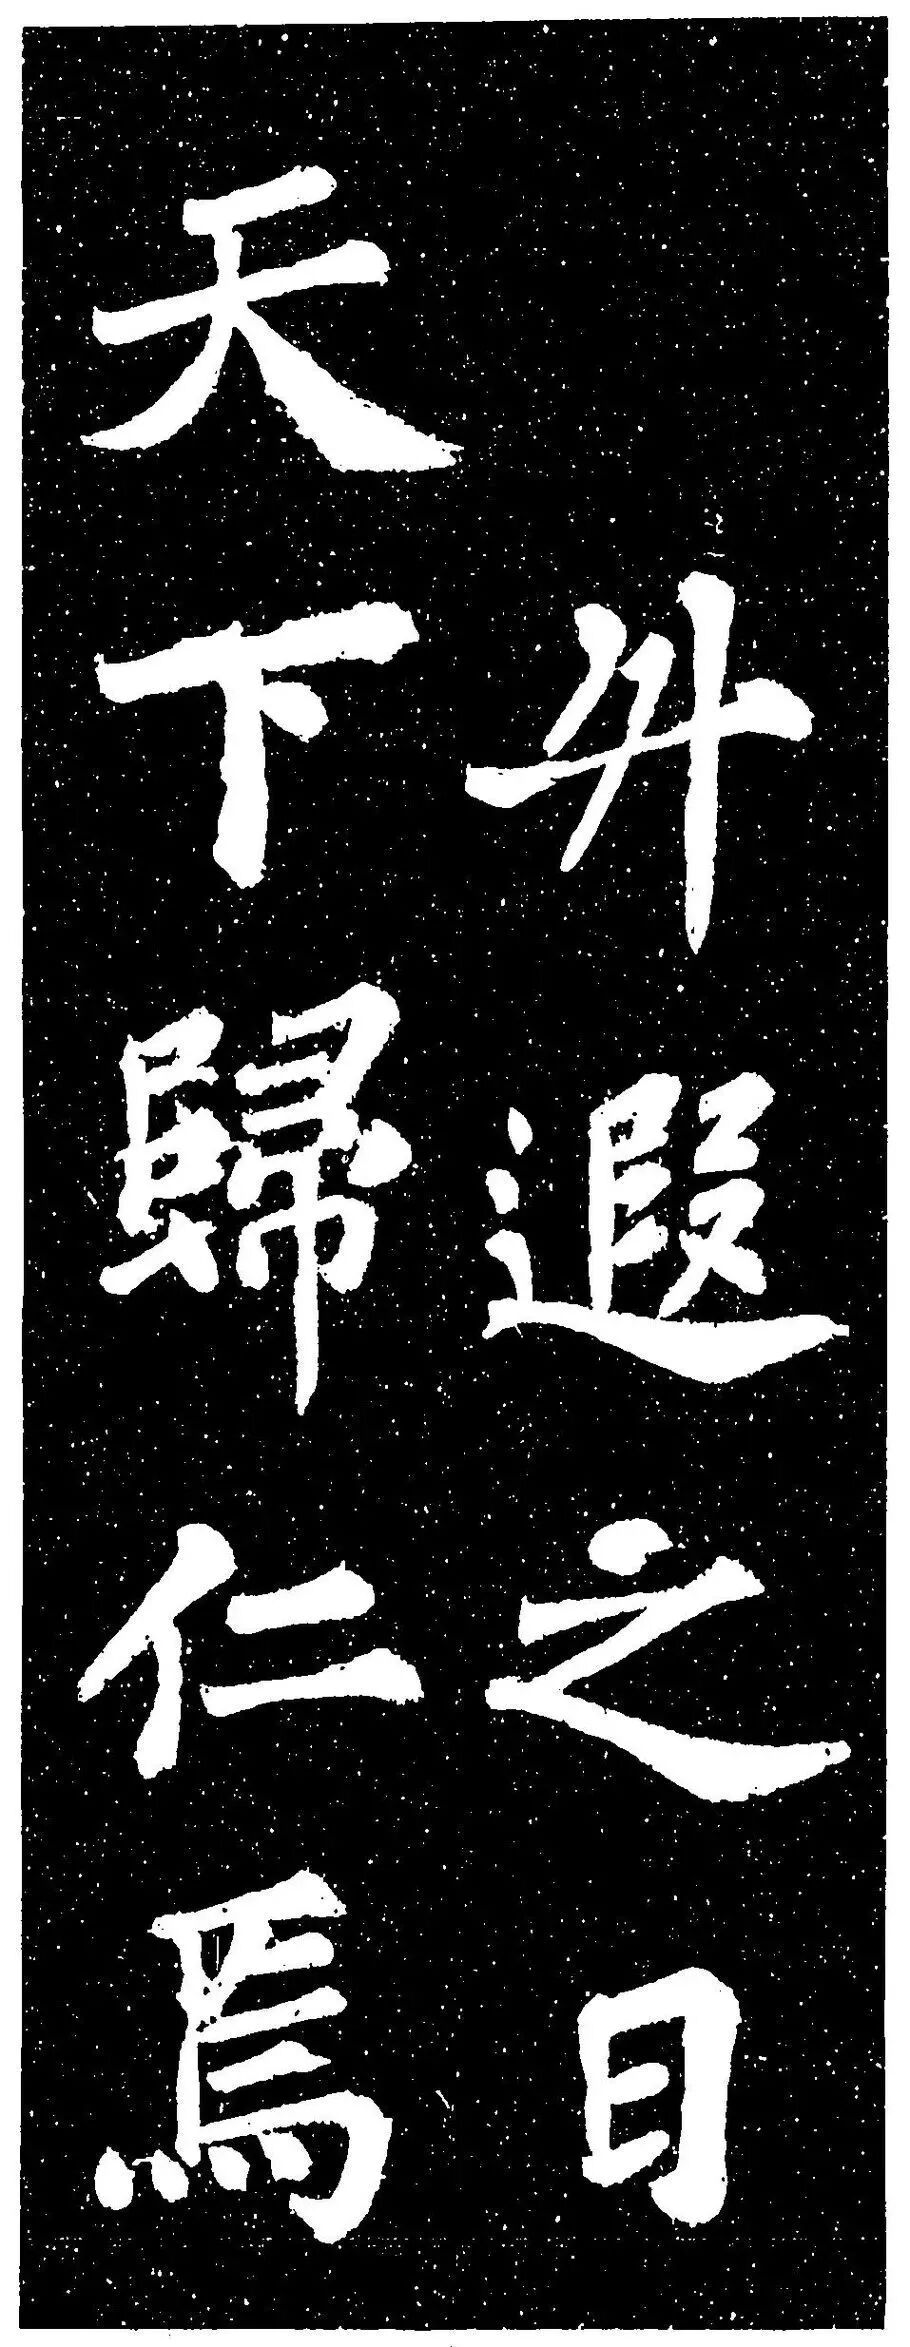 升遐之日
天下歸仁焉